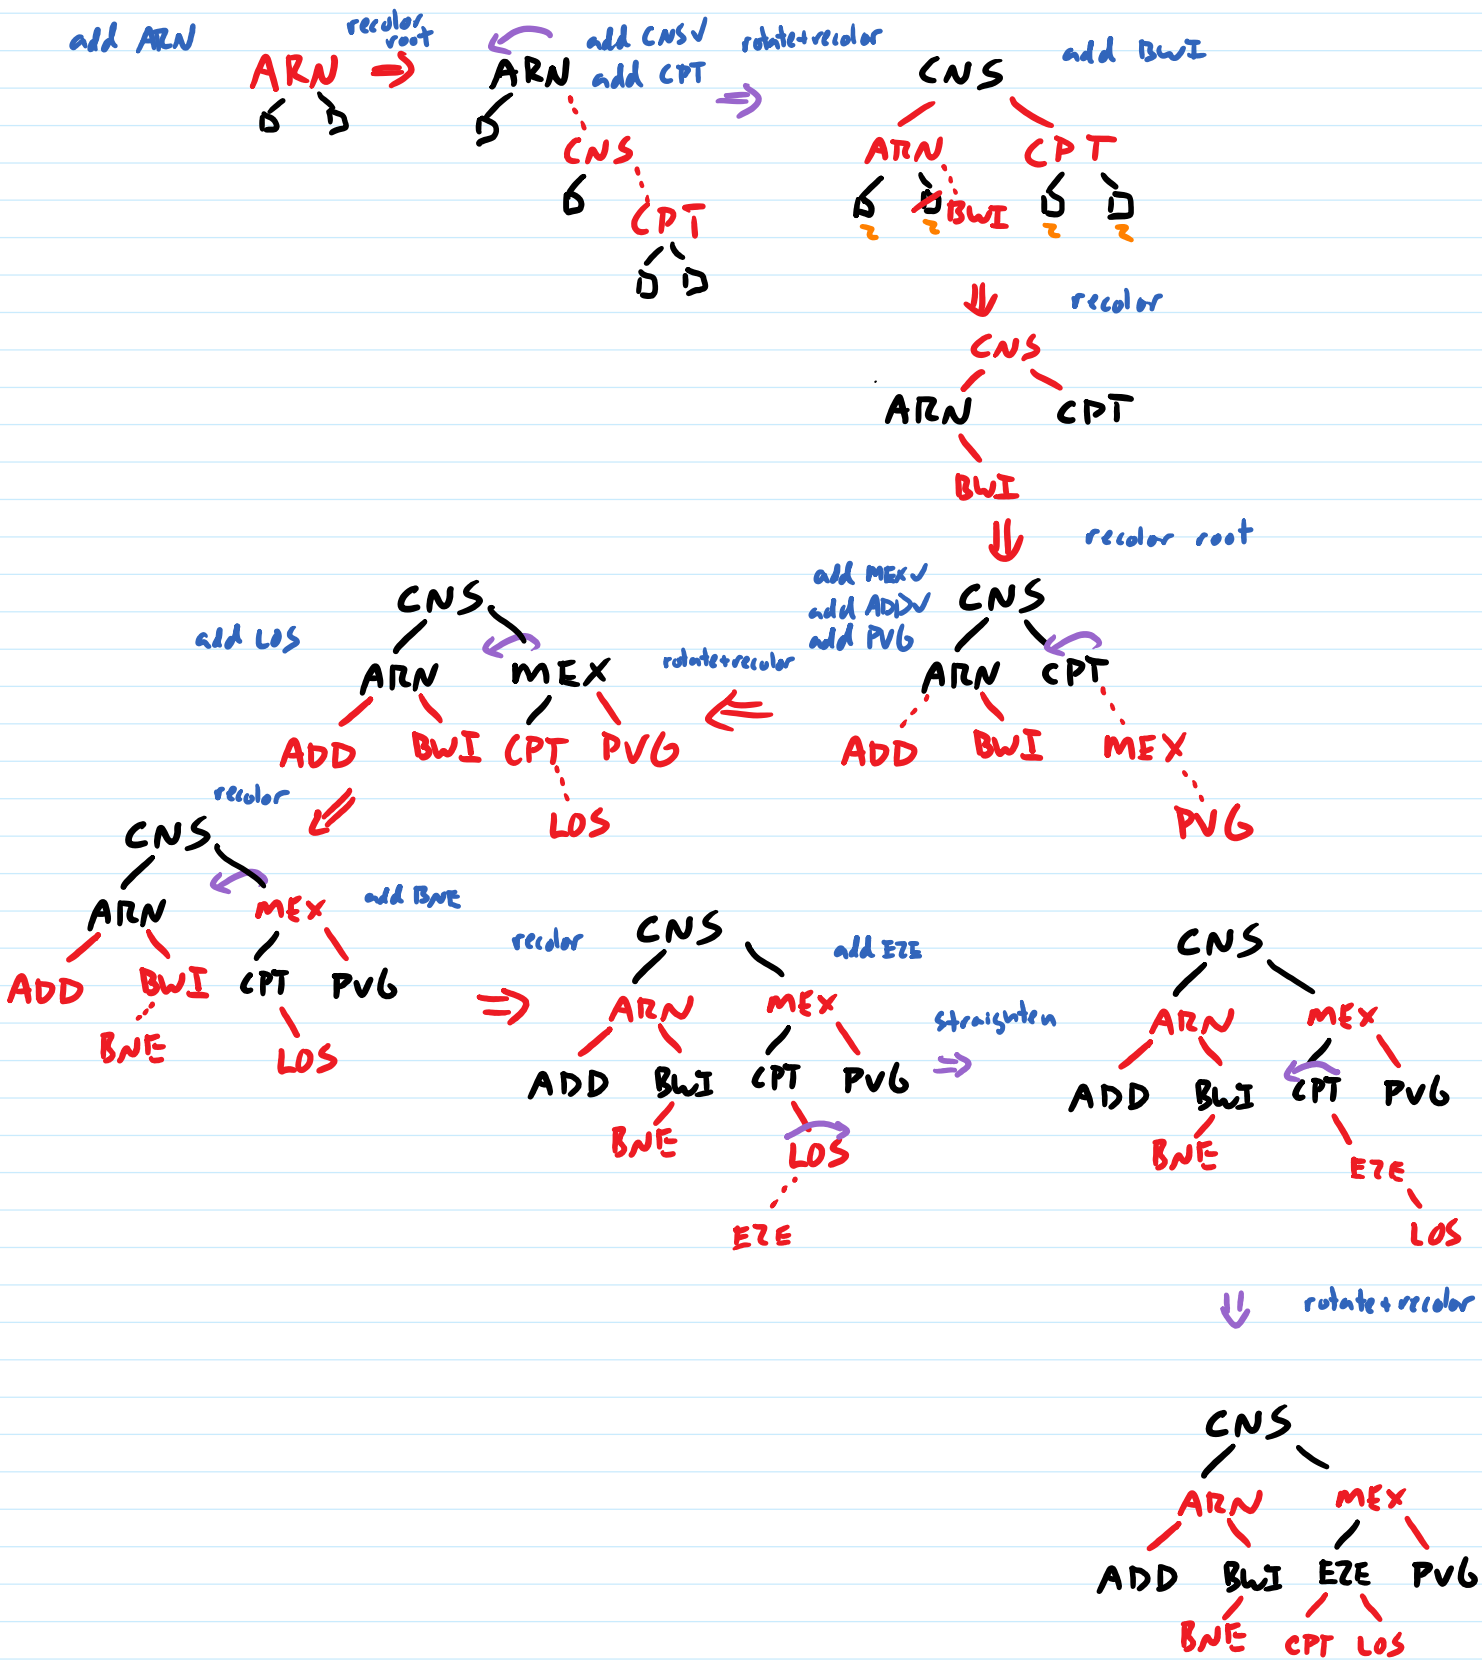 add ARN
recolor root
ARN
ARN
add CNS✓
add CPT
CNS
CPT
rotate+recolor
CNS
add BWI
ARN CPT
BWI
2 2 2 2
recolor
CNS
ARN CPT
BWI
recolor root
add MEX✓
add ADD✓
add PVG
CNS
ARN CPT
ADD BWI MEX
PVG
rotate+recolor
CNS
add LOS
ARN MEX
ADD BWI CPT PVG
LOS
recolor
CNS
ARN MEX
add BNE
ADD BWI CPT PVG
BNE LOS
recolor
CNS
add EZE
ARN MEX
ADD BWI CPT PVG
BNE LOS
EZE
straighten
CNS
ARN MEX
ADD BWI CPT PVG
BNE EZE
LOS
rotate+recolor
CNS
ARN MEX
ADD BWI EZE PVG
BNE CPT LOS